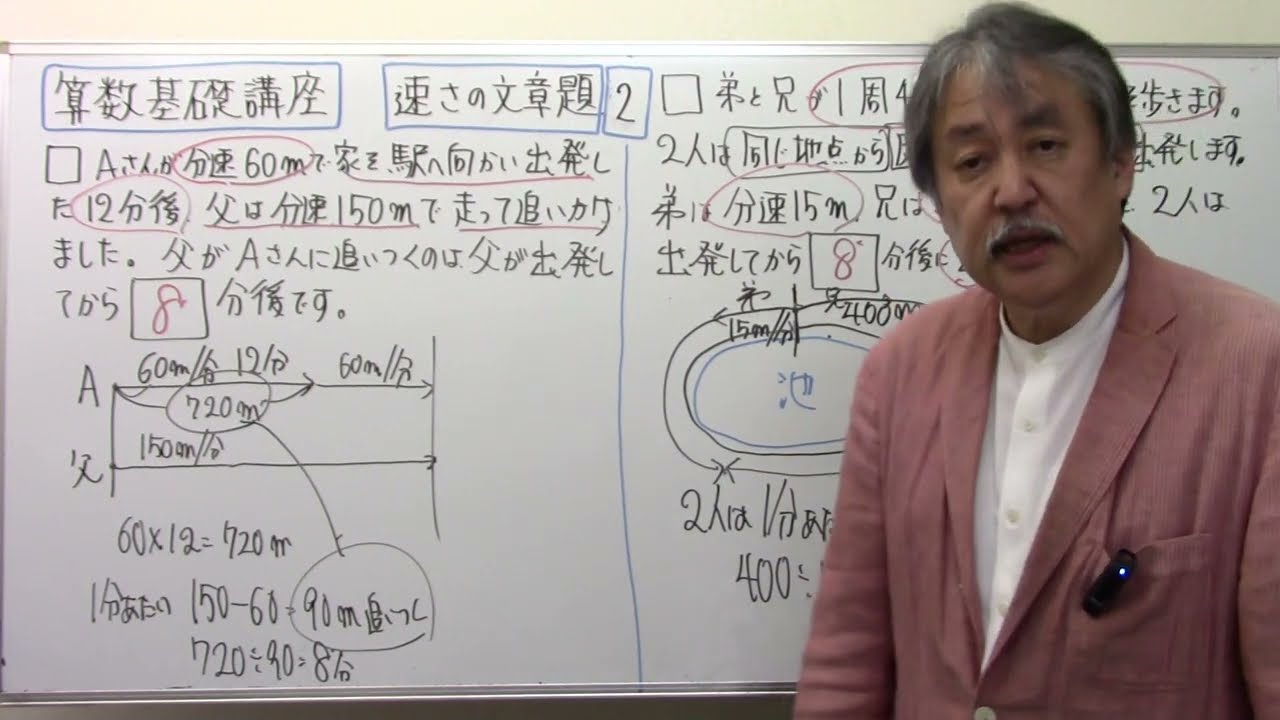 算数基礎講座
速さの文章題 2
□ Aさんが分速60mで家を駅へ向かい出発し
た12分後、父は分速150mで走って追いかけ
ました。父がAさんに追いつくのは父が出発し
てから 8 分後です。
A 60m/分 12分 60m/分
720m
父 150m/分
60×12=720m
1分あたり 150-60=90m追いつく
720÷90=8分
□ 弟と兄が1周4 を歩きます。
2人は同じ地点から 出発します。
弟は分速15m、兄は 2人は
出発してから 8 分後に
弟 兄
15m/分 400m
池
2人は1分あた
400÷